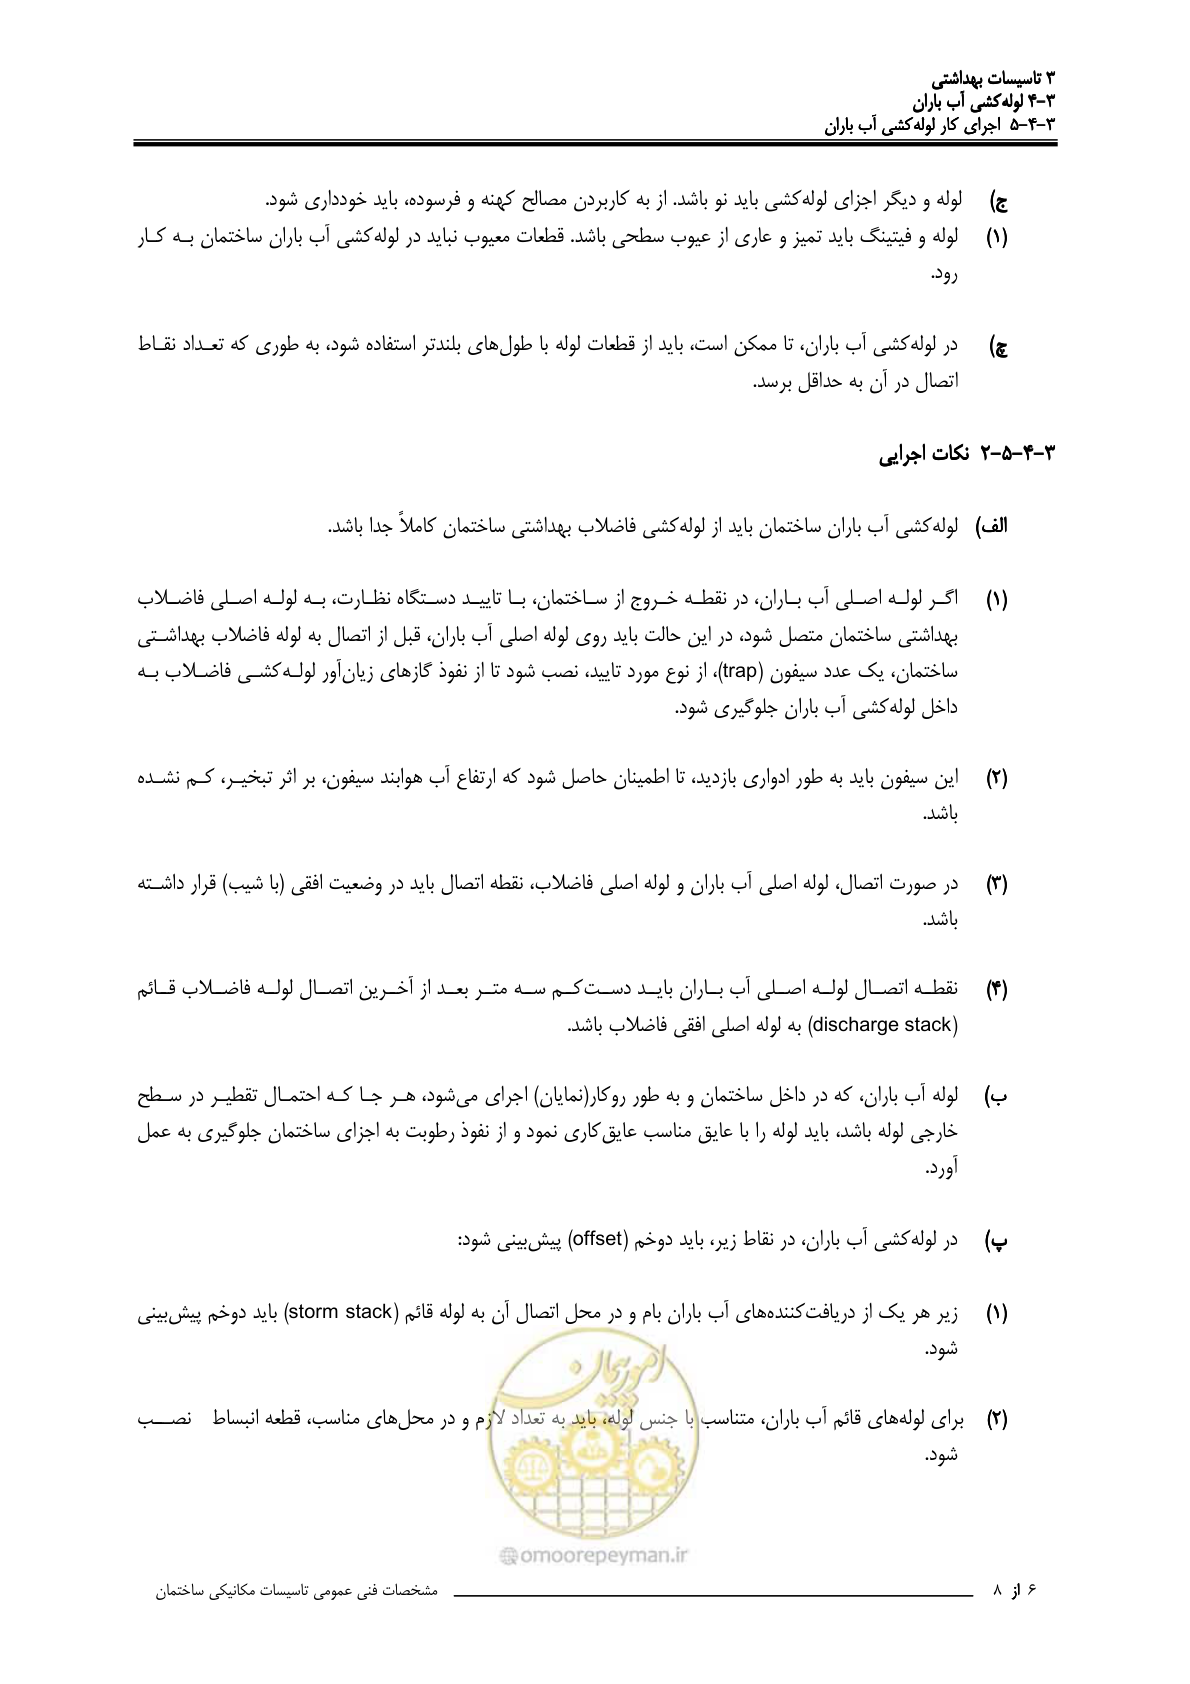 ۳ تاسیسات بهداشتی
۳-۴ لوله‌کشی آب باران
۳-۴-۵ اجرای کار لوله‌کشی آب باران
ج) لوله و دیگر اجزای لوله‌کشی باید نو باشد. از به کاربردن مصالح کهنه و فرسوده، باید خودداری شود.
(۱) لوله و فیتینگ باید تمیز و عاری از عیوب سطحی باشد. قطعات معیوب نباید در لوله‌کشی آب باران ساختمان به کار
رود.
چ) در لوله‌کشی آب باران، تا ممکن است، باید از قطعات لوله با طول‌های بلندتر استفاده شود، به طوری که تعداد نقاط
اتصال در آن به حداقل برسد.
۳-۴-۵-۲ نکات اجرایی
الف) لوله‌کشی آب باران ساختمان باید از لوله‌کشی فاضلاب بهداشتی ساختمان کاملاً جدا باشد.
(۱) اگر لوله اصلی آب باران، در نقطه خروج از ساختمان، با تایید دستگاه نظارت، به لوله اصلی فاضلاب
بهداشتی ساختمان متصل شود، در این حالت باید روی لوله اصلی آب باران، قبل از اتصال به لوله فاضلاب بهداشتی
ساختمان، یک عدد سیفون (trap)، از نوع مورد تایید، نصب شود تا از نفوذ گازهای زیان‌آور لوله‌کشی فاضلاب به
داخل لوله‌کشی آب باران جلوگیری شود.
(۲) این سیفون باید به طور ادواری بازدید، تا اطمینان حاصل شود که ارتفاع آب هوابند سیفون، بر اثر تبخیر، کم نشده
باشد.
(۳) در صورت اتصال، لوله اصلی آب باران و لوله اصلی فاضلاب، نقطه اتصال باید در وضعیت افقی (با شیب) قرار داشته
باشد.
(۴) نقطه اتصال لوله اصلی آب باران باید دست‌کم سه متر بعد از آخرین اتصال لوله فاضلاب قائم
(discharge stack) به لوله اصلی افقی فاضلاب باشد.
ب) لوله آب باران، که در داخل ساختمان و به طور روکار(نمایان) اجرای می‌شود، هر جا که احتمال تقطیر در سطح
خارجی لوله باشد، باید لوله را با عایق مناسب عایق‌کاری نمود و از نفوذ رطوبت به اجزای ساختمان جلوگیری به عمل
آورد.
پ) در لوله‌کشی آب باران، در نقاط زیر، باید دوخم (offset) پیش‌بینی شود:
(۱) زیر هر یک از دریافت‌کننده‌های آب باران بام و در محل اتصال آن به لوله قائم (storm stack) باید دوخم پیش‌بینی
شود.
(۲) برای لوله‌های قائم آب باران، متناسب با جنس لوله، باید به تعداد لازم و در محل‌های مناسب، قطعه انبساط نصب
شود.
امور پیمان
@omoorepeyman.ir
۶ از ۸ مشخصات فنی عمومی تاسیسات مکانیکی ساختمان